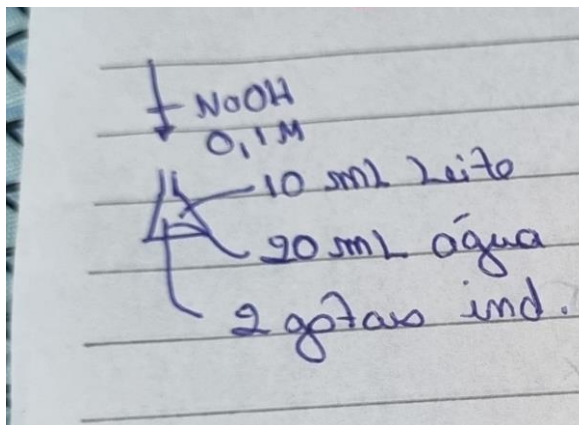 NaOH
0,1M
10 mL Leite
20 mL água
2 gotas ind.